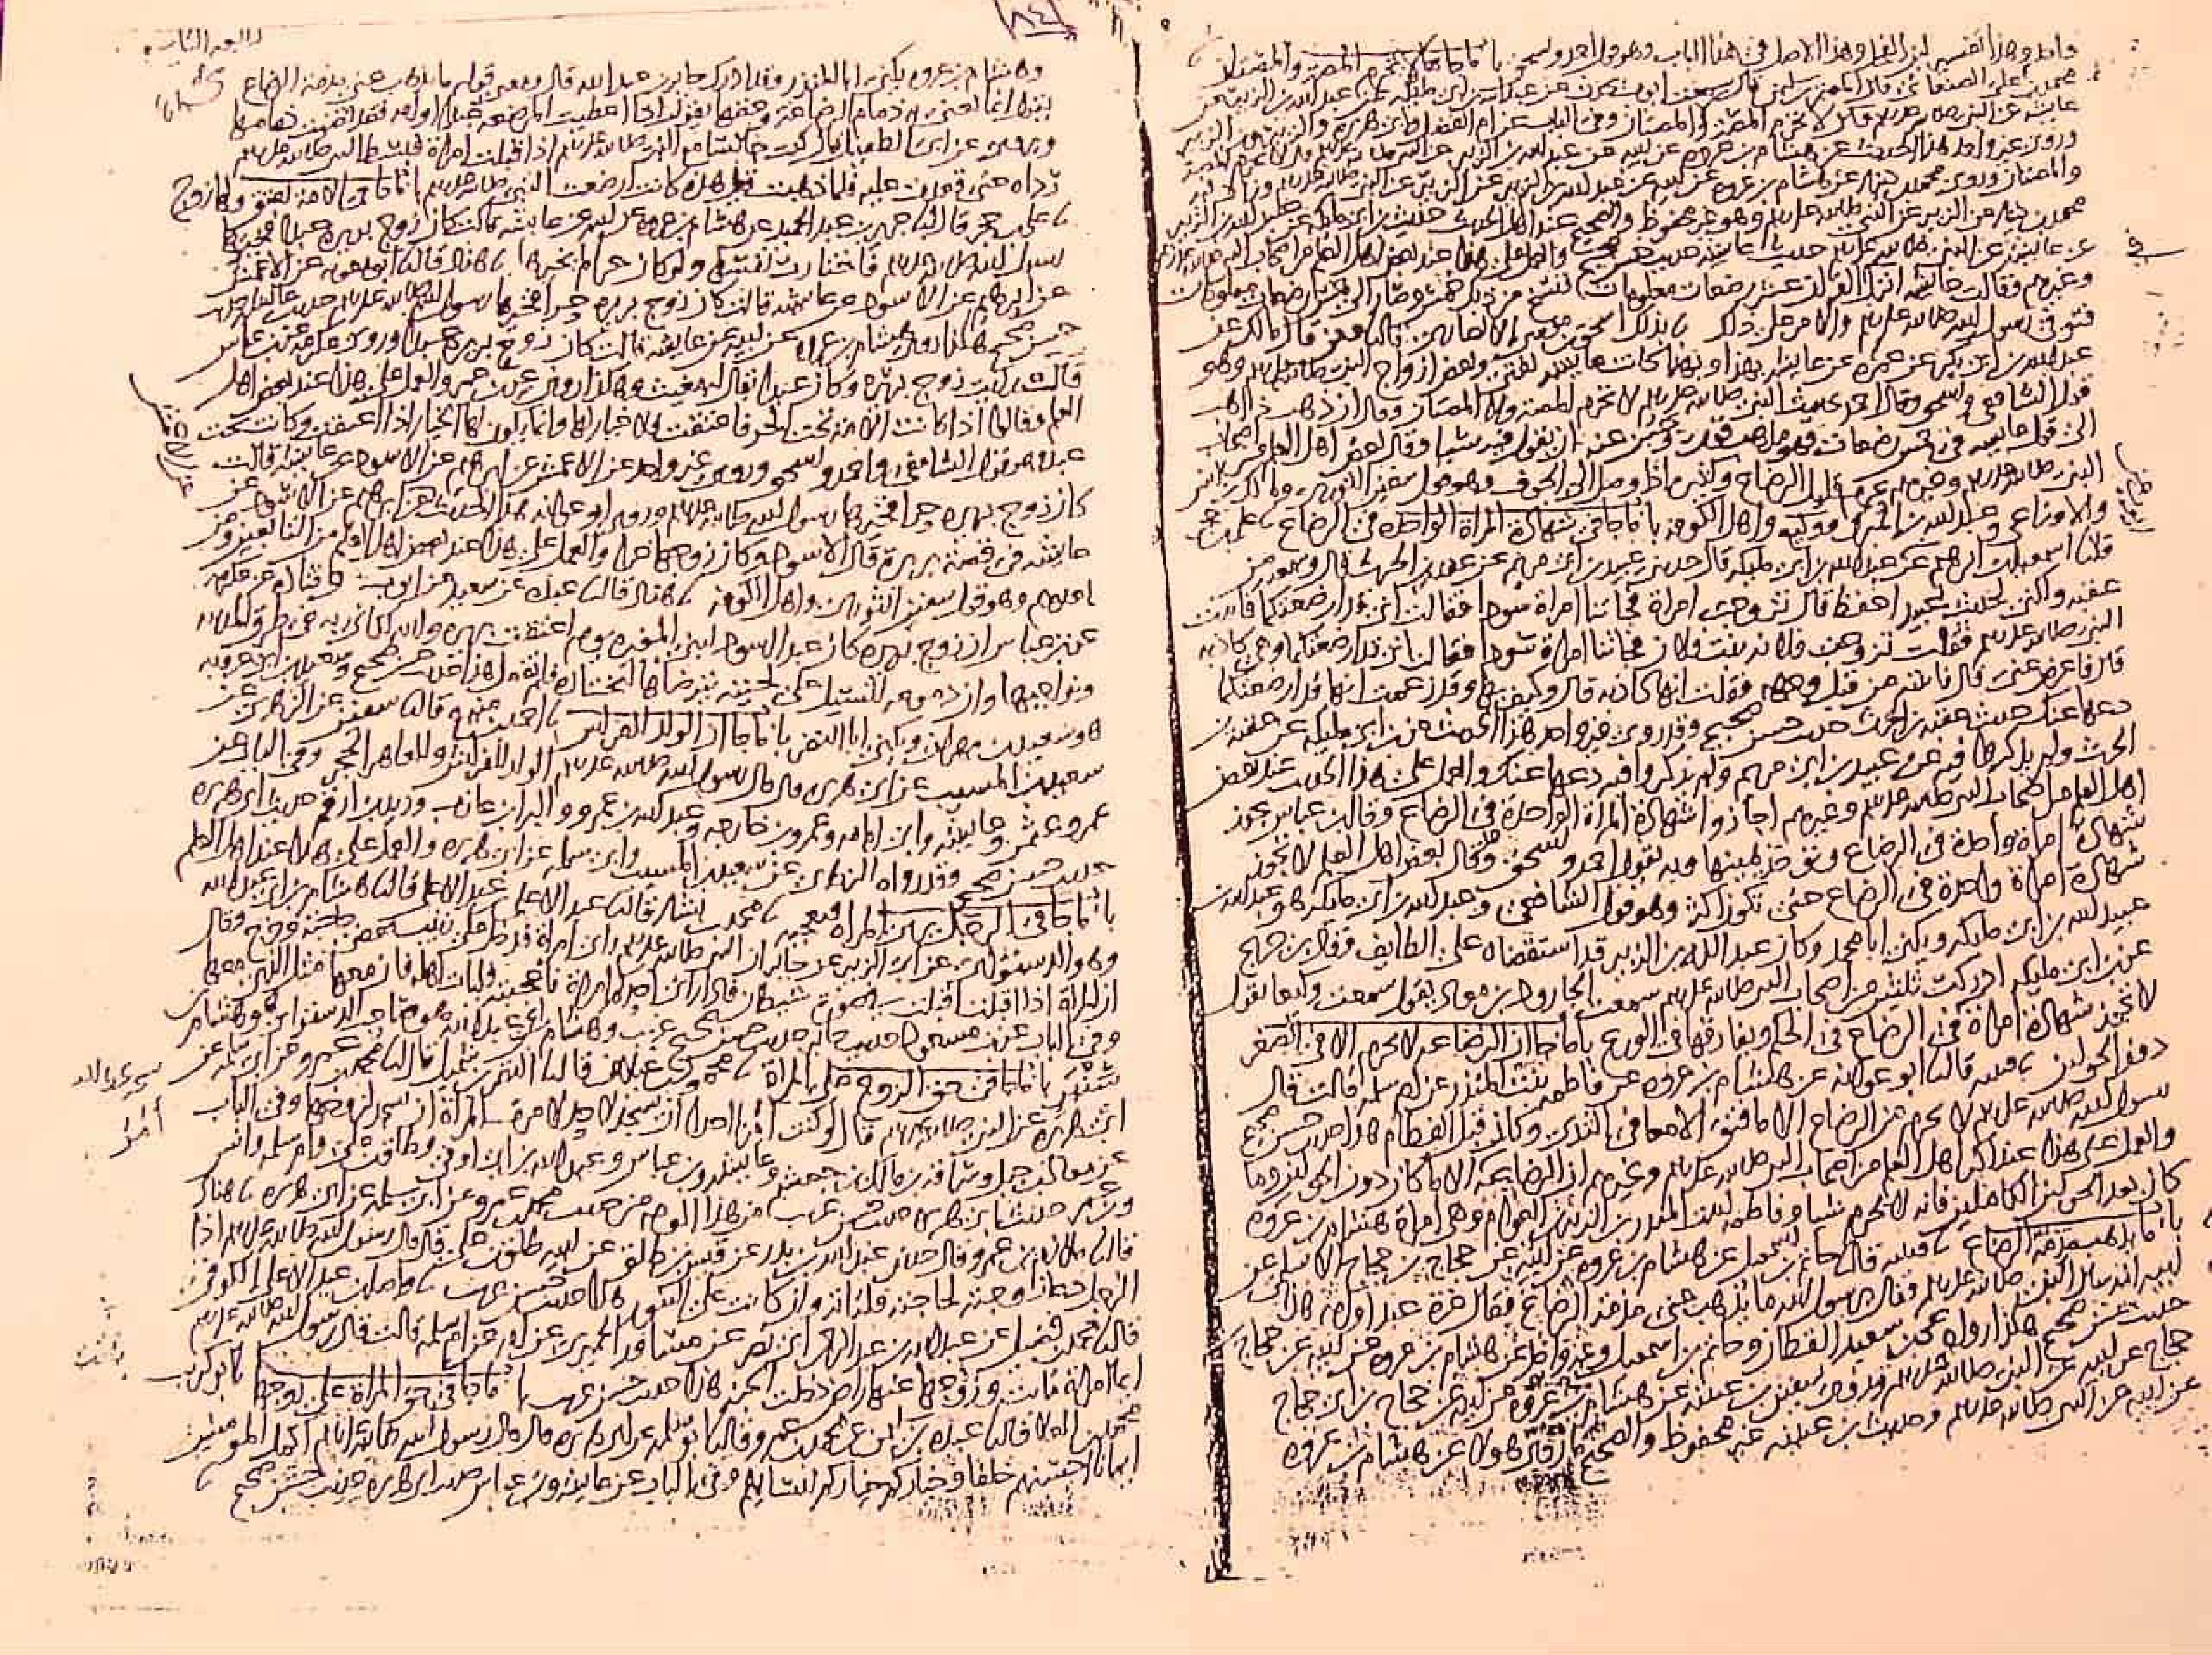 واحد وهذا تفسير لبن الفحل وهذا الاصل في هذا الباب وهو قول احمد واسحق باب ما جا لا تحرم المصة والمصتان
محمد بن عبد الاعلى الصنعاني قال المعتمر بن سليمن قال سمعت ايوب يحدث عن عبد الله بن ابي مليكه عن عبد الله بن الزبير عن
عايشه عن النبي صلى الله عليه وسلم قال لا تحرم المصة ولا المصتان وفي الباب عن ام الفضل وابي هريره والزبير وابن الزبير
وروى غير واحد هذا الحديث عن هشام بن عروه عن ابيه عن عبد الله بن الزبير عن النبي صلى الله عليه وسلم قال لا تحرم المصة
والمصتان وروى محمد بن دينار عن هشام بن عروه عن ابيه عن عبد الله بن الزبير عن الزبير عن النبي صلى الله عليه وسلم وزاد فيه
محمد بن دينار عن الزبير عن النبي صلى الله عليه وسلم وهو غير محفوظ والصحيح عند اهل الحديث حديث ابن ابي مليكه عن عبد الله بن الزبير
عن عايشه عن النبي صلى الله عليه وسلم حديث عايشه حديث حسن صحيح والعمل على هذا عند بعض اهل العلم من اصحاب النبي صلى الله عليه وسلم
وغيرهم وقالت عايشه انزل في القران عشر رضعات معلومات فنسخ من ذلك خمس وصار الى خمس رضعات معلومات
فتوفي رسول الله صلى الله عليه وسلم والامر على ذلك بذلك اسحق بن موسى الانصاري قال معن قال مالك عن
عبد الله بن ابي بكر عن عمره عن عايشه بهذا وبهذا كانت عايشه تفتي وبعض ازواج النبي صلى الله عليه وسلم وهو
قول الشافعي واسحق وقال احمد بحديث النبي صلى الله عليه وسلم لا تحرم المصة ولا المصتان وقال ان ذهب ذاهب
الى قول عايشه في خمس رضعات فهو مذهب قوي وجبن عنه ان يقول فيه شيا وقال بعض اهل العلم من اصحاب
النبي صلى الله عليه وسلم وغيرهم يحرم قليل الرضاع وكثيره اذا وصل الى الجوف وهو قول سفين الثوري ومالك بن انس
والاوزاعي وعبد الله بن المبرك ووكيع واهل الكوفه باب ما جا في شهادة المراة الواحدة في الرضاع علي بن حجر
قال اسمعيل بن ابرهيم عن عبد الله بن ابي مليكه قال حدثني عبيد بن ابي مريم عن عقبه بن الحرث قال وسمعته من
عقبه ولكني لحديث عبيد احفظ قال تزوجت امراة فجاتنا امراة سودا فقالت اني قد ارضعتكما فاتيت
النبي صلى الله عليه وسلم فقلت تزوجت فلانه بنت فلان فجاتنا امراة سودا فقالت اني قد ارضعتكما وهي كاذبه
قال فاعرض عني قال فاتيته من قبل وجهه فقلت انها كاذبه قال وكيف بها وقد زعمت انها قد ارضعتكما
دعها عنك حديث عقبه بن الحرث حديث حسن صحيح وقد روى غير واحد هذا الحديث عن ابن ابي مليكه عن عقبه بن
الحرث ولم يذكروا فيه عن عبيد بن ابي مريم ولم يذكروا فيه دعها عنك والعمل على هذا الحديث عند بعض
اهل العلم من اصحاب النبي صلى الله عليه وسلم وغيرهم اجازوا شهادة المراة الواحدة في الرضاع وقال ابن عباس تجوز
شهادة امراة واحدة في الرضاع ويؤخذ يمينها وبه يقول احمد واسحق وقال بعض اهل العلم لا تجوز
شهادة امراة واحدة في الرضاع حتى تكون اكثر وهو قول الشافعي وعبد الله بن ابي مليكه هو عبد الله بن
عبيد الله بن ابي مليكه ويكنى ابا محمد وكان عبد الله بن الزبير قد استقضاه على الطايف وقال ابن جريج
عن ابن ابي مليكه ادركت ثلثين من اصحاب النبي صلى الله عليه وسلم سمعت الجارود بن معاذ يقول سمعت وكيعا يقول
لا تجوز شهادة امراة في الرضاع في الحكم ويفارقها في الورع باب ما جا ان الرضاعه لا تحرم الا في الصغر
دون الحولين قتيبه قال ابو عوانه عن هشام بن عروه عن فاطمه بنت المنذر عن ام سلمه قالت قال
رسول الله صلى الله عليه وسلم لا يحرم من الرضاع الا ما فتق الامعا في الثدي وكان قبل الفطام هذا حديث حسن صحيح
والعمل على هذا عند اكثر اهل العلم من اصحاب النبي صلى الله عليه وسلم وغيرهم ان الرضاعه لا تحرم الا ما كان دون الحولين وما
كان بعد الحولين الكاملين فانه لا يحرم شيا وفاطمه بنت المنذر بن الزبير بن العوام وهي امراة هشام بن عروه
باب ما يذهب مذمة الرضاع قتيبه قال حاتم بن اسمعيل عن هشام بن عروه عن ابيه عن حجاج بن حجاج الاسلمي عن
ابيه انه سال النبي صلى الله عليه وسلم فقال يرسول الله ما يذهب عني مذمة الرضاع فقال غرة عبد او امة هذا
حديث حسن صحيح هكذا رواه يحيى بن سعيد القطان وحاتم بن اسمعيل وغير واحد عن هشام بن عروه عن ابيه عن حجاج بن حجاج
عن ابيه عن النبي صلى الله عليه وسلم وروى سفين بن عيينه عن هشام بن عروه عن ابيه عن حجاج بن ابي حجاج
عن ابيه عن النبي صلى الله عليه وسلم وحديث ابن عيينه غير محفوظ والصحيح ما روى هولا عن هشام بن عروه
٨٤
وهشام بن عروه يكنى ابا المنذر وقد ادرك جابر بن عبد الله قال ومعنى قوله ما يذهب عني مذمة الرضاع
يقول انما يعني به ذمام الرضاعه وحقها يقول اذا اعطيت المرضعه عبدا او امه فقد قضيت ذمامها
ويروى عن ابي الطفيل قال كنت جالسا مع النبي صلى الله عليه وسلم اذ اقبلت امراة فبسط النبي صلى الله عليه وسلم
رداه حتى قعدت عليه فلما ذهبت قيل هذه كانت ارضعت النبي صلى الله عليه وسلم باب ما جا في الامة تعتق ولها زوج
علي بن حجر قال جرير بن عبد الحميد عن هشام بن عروه عن ابيه عن عايشه قالت كان زوج بريره عبدا فخيرها
رسول الله صلى الله عليه وسلم فاختارت نفسها ولو كان حرا لم يخيرها هناد قال ابو معويه عن الاعمش
عن ابرهيم عن الاسود عن عايشه قالت كان زوج بريره حرا فخيرها رسول الله صلى الله عليه وسلم حديث عايشه حديث
حسن صحيح هكذا روى هشام بن عروه عن ابيه عن عايشه قالت كان زوج بريره عبدا وروى عكرمه عن ابن عباس
قال رايت زوج بريره وكان عبدا يقال له مغيث وهكذا روي عن ابن عمر والعمل على هذا عند بعض اهل
العلم وقالوا اذا كانت الامة تحت الحر فاعتقت فلا خيار لها وانما يكون لها الخيار اذا اعتقت وكانت تحت
عبد وهو قول الشافعي واحمد واسحق وروى غير واحد عن الاعمش عن ابرهيم عن الاسود عن عايشه قالت
كان زوج بريره حرا فخيرها رسول الله صلى الله عليه وسلم وروى ابو عوانه هذا الحديث عن الاعمش عن ابرهيم عن الاسود عن
عايشه في قصة بريرة قال الاسود وكان زوجها حرا والعمل على هذا عند بعض اهل العلم من التابعين ومن
بعدهم وهو قول سفين الثوري واهل الكوفه هناد قال عبده عن سعيد عن ايوب وقتاده عن عكرمه
عن ابن عباس ان زوج بريره كان عبدا اسود لبني المغيره يوم اعتقت بريره والله لكاني به في طرق المدينه
ونواحيها وان دموعه لتسيل على لحيته يترضاها لتختاره فلم تفعل هذا حديث حسن صحيح وسعيد بن ابي عروبه
هو سعيد بن مهران ويكنى ابا النضر باب ما جا ان الولد للفراش احمد بن منيع قال سفين عن الزهري عن
سعيد بن المسيب عن ابي هريره قال قال رسول الله صلى الله عليه وسلم الولد للفراش وللعاهر الحجر وفي الباب عن
عمر وعثمن وعايشه وابي امامه وعمرو بن خارجه وعبد الله بن عمرو والبرا بن عازب وزيد بن ارقم حديث ابي هريره
حديث حسن صحيح وقد رواه الزهري عن سعيد بن المسيب وابي سلمه عن ابي هريره والعمل على هذا عند اهل العلم
باب ما جا في الرجل يرى المراة فتعجبه محمد بن بشار قال عبد الاعلى بن عبد الاعلى قال هشام بن ابي عبد الله
وهو الدستوائي عن ابي الزبير عن جابر ان النبي صلى الله عليه وسلم راى امراة فدخل على زينب فقضى حاجته وخرج وقال
ان المراة اذا اقبلت اقبلت في صورة شيطان فاذا راى احدكم امراة فاعجبته فليات اهله فان معها مثل الذي معها
وفي الباب عن ابن مسعود حديث جابر حديث حسن صحيح غريب وهشام بن ابي عبد الله هو صاحب الدستوائي هو هشام بن
سنبر باب ما جا في حق الزوج على المراة محمود بن غيلان قال النضر بن شميل قال محمد بن عمرو عن ابي سلمه عن
ابي هريره عن النبي صلى الله عليه وسلم قال لو كنت امرا احدا ان يسجد لاحد لامرت المراة ان تسجد لزوجها وفي الباب
عن معاذ بن جبل وسراقه بن مالك بن جعشم وعايشه وابن عباس وعبد الله بن ابي اوفى وطلق بن علي وام سلمه وانس
وابن عمر حديث ابي هريره حديث حسن غريب من هذا الوجه من حديث محمد بن عمرو عن ابي سلمه عن ابي هريره هناد
قال ملازم بن عمرو قال حدثني عبد الله بن بدر عن قيس بن طلق عن ابيه طلق بن علي قال قال رسول الله صلى الله عليه وسلم اذا
الرجل دعا زوجته لحاجته فلتاته وان كانت على التنور هذا حديث حسن غريب واصل بن عبد الاعلى الكوفي
قال محمد بن فضيل عن عبد الله بن عبد الرحمن ابي نصر عن مساور الحميري عن امه عن ام سلمه قالت قال رسول الله صلى الله عليه وسلم
ايما امراة باتت وزوجها عنها راض دخلت الجنه هذا حديث حسن غريب باب ما جا في حق المراة على زوجها ابو كريب
محمد بن العلا قال عبده بن سليمن عن محمد بن عمرو قال ابو سلمه عن ابي هريره قال قال رسول الله صلى الله عليه وسلم اكمل المومنين
ايمانا احسنهم خلقا وخياركم خياركم لنسايهم وفي الباب عن عايشه وابن عباس حديث ابي هريره حديث حسن صحيح